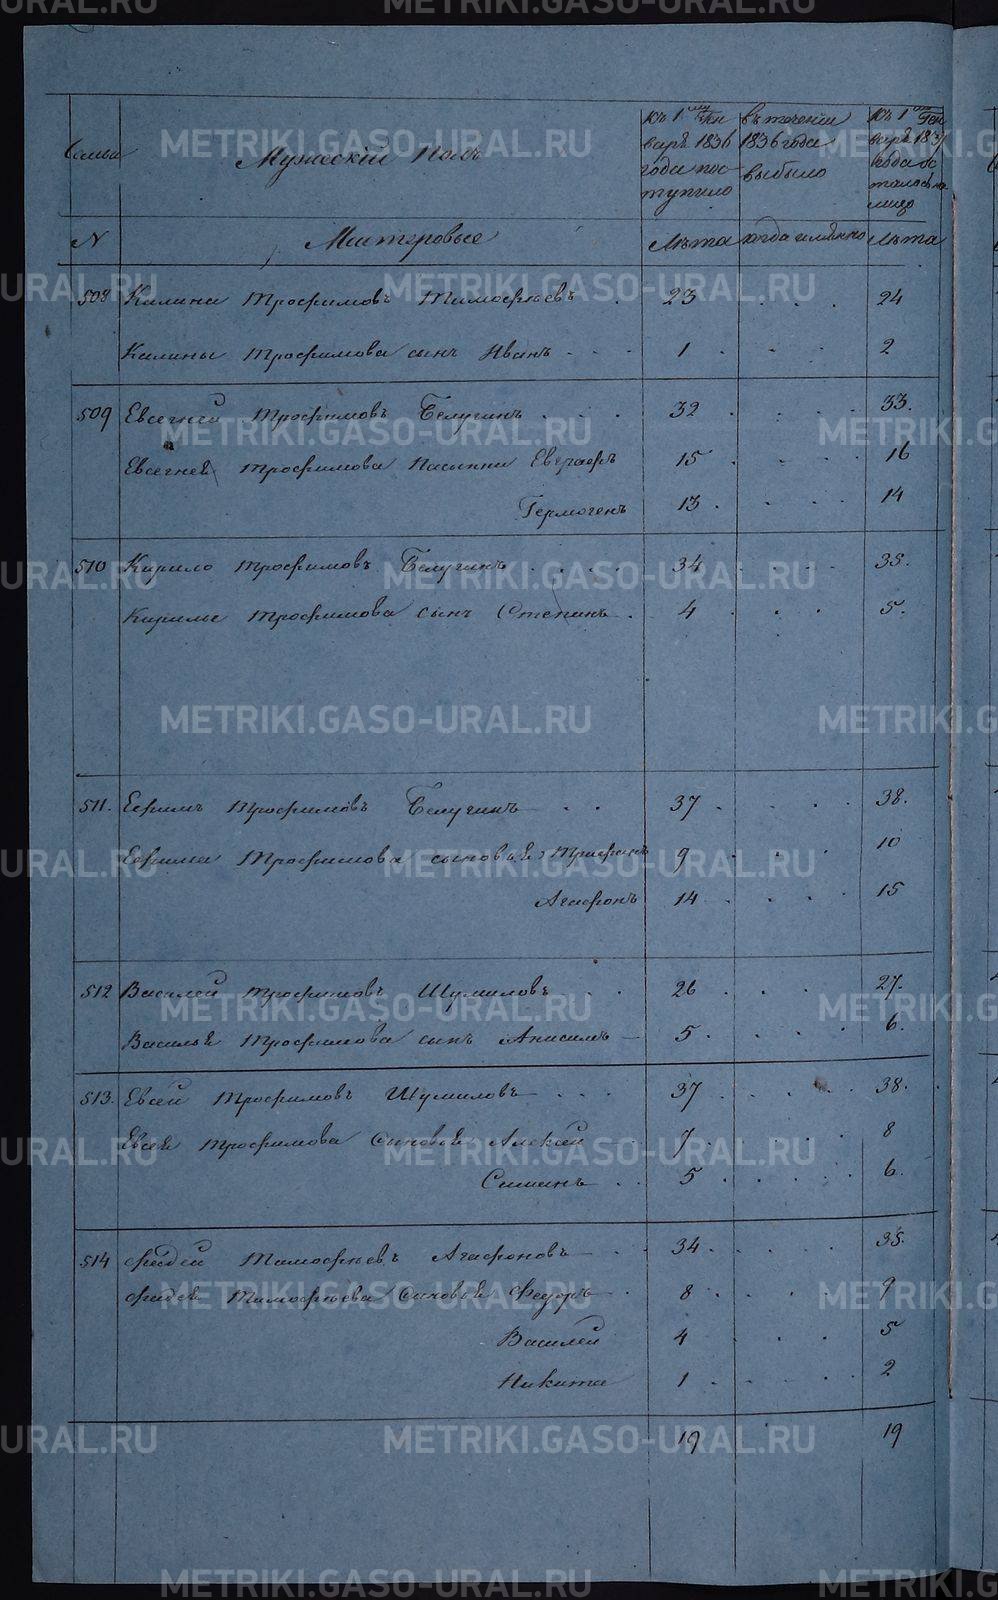 Семьи
Мужескiй Полъ
къ 1му Ген
варѣ 1836
года пос
тупило
въ теченiи
1836 года
выбыло
къ 1му Ген
варѣ 1837
года ос
талось на
лицо
N
Мастеровые
Лѣта
когда имянно
Лѣта
508 Калина Трофимовъ Тимофѣевъ 23 24
Калины Трофимова сынъ Иванъ 1 2
509 Евсегней Трофимовъ Белугинъ 32 33.
Евсегнея Трофимова Пасынки Евграфъ 15 16
Гермогенъ 13 14
510 Кирило Трофимовъ Белугинъ 34 35.
Кирилы Трофимова сынъ Степанъ 4 5.
511. Ефимъ Трофимовъ Белугинъ 37 38.
Ефима Трофимова сыновья Трифанъ 9 10
Агафонъ 14 15
512 Василей Трофимовъ Шумиловъ 26 27.
Василья Трофимова сынъ Анисимъ 5 6.
513. Евсей Трофимовъ Шумиловъ 37 38.
Евсея Трофимова Сыновья Алексей 7 8
Симанъ 5 6.
514 Фадей Тимофѣевъ Агафоновъ 34 35.
Фадея Тимофѣева Сыновья Федоръ 8 9
Василей 4 5
Никита 1 2
19 19
METRIKI.GASO-URAL.RU